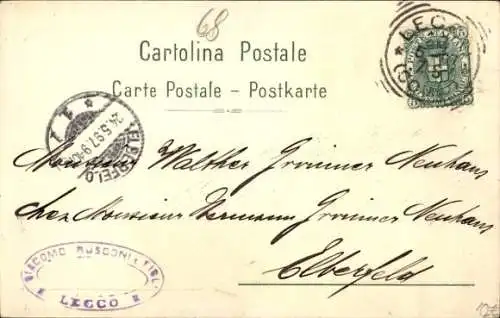 68
Cartolina Postale
Carte Postale - Postkarte
LECCO
ELBERFELD
24.5.97
Monsieur Walther Grminer Neuhaus
chez Monsieur Hermann Grminer Neuhaus
Elberfeld
GIACOMO RUSCONI & FIGLI
LECCO